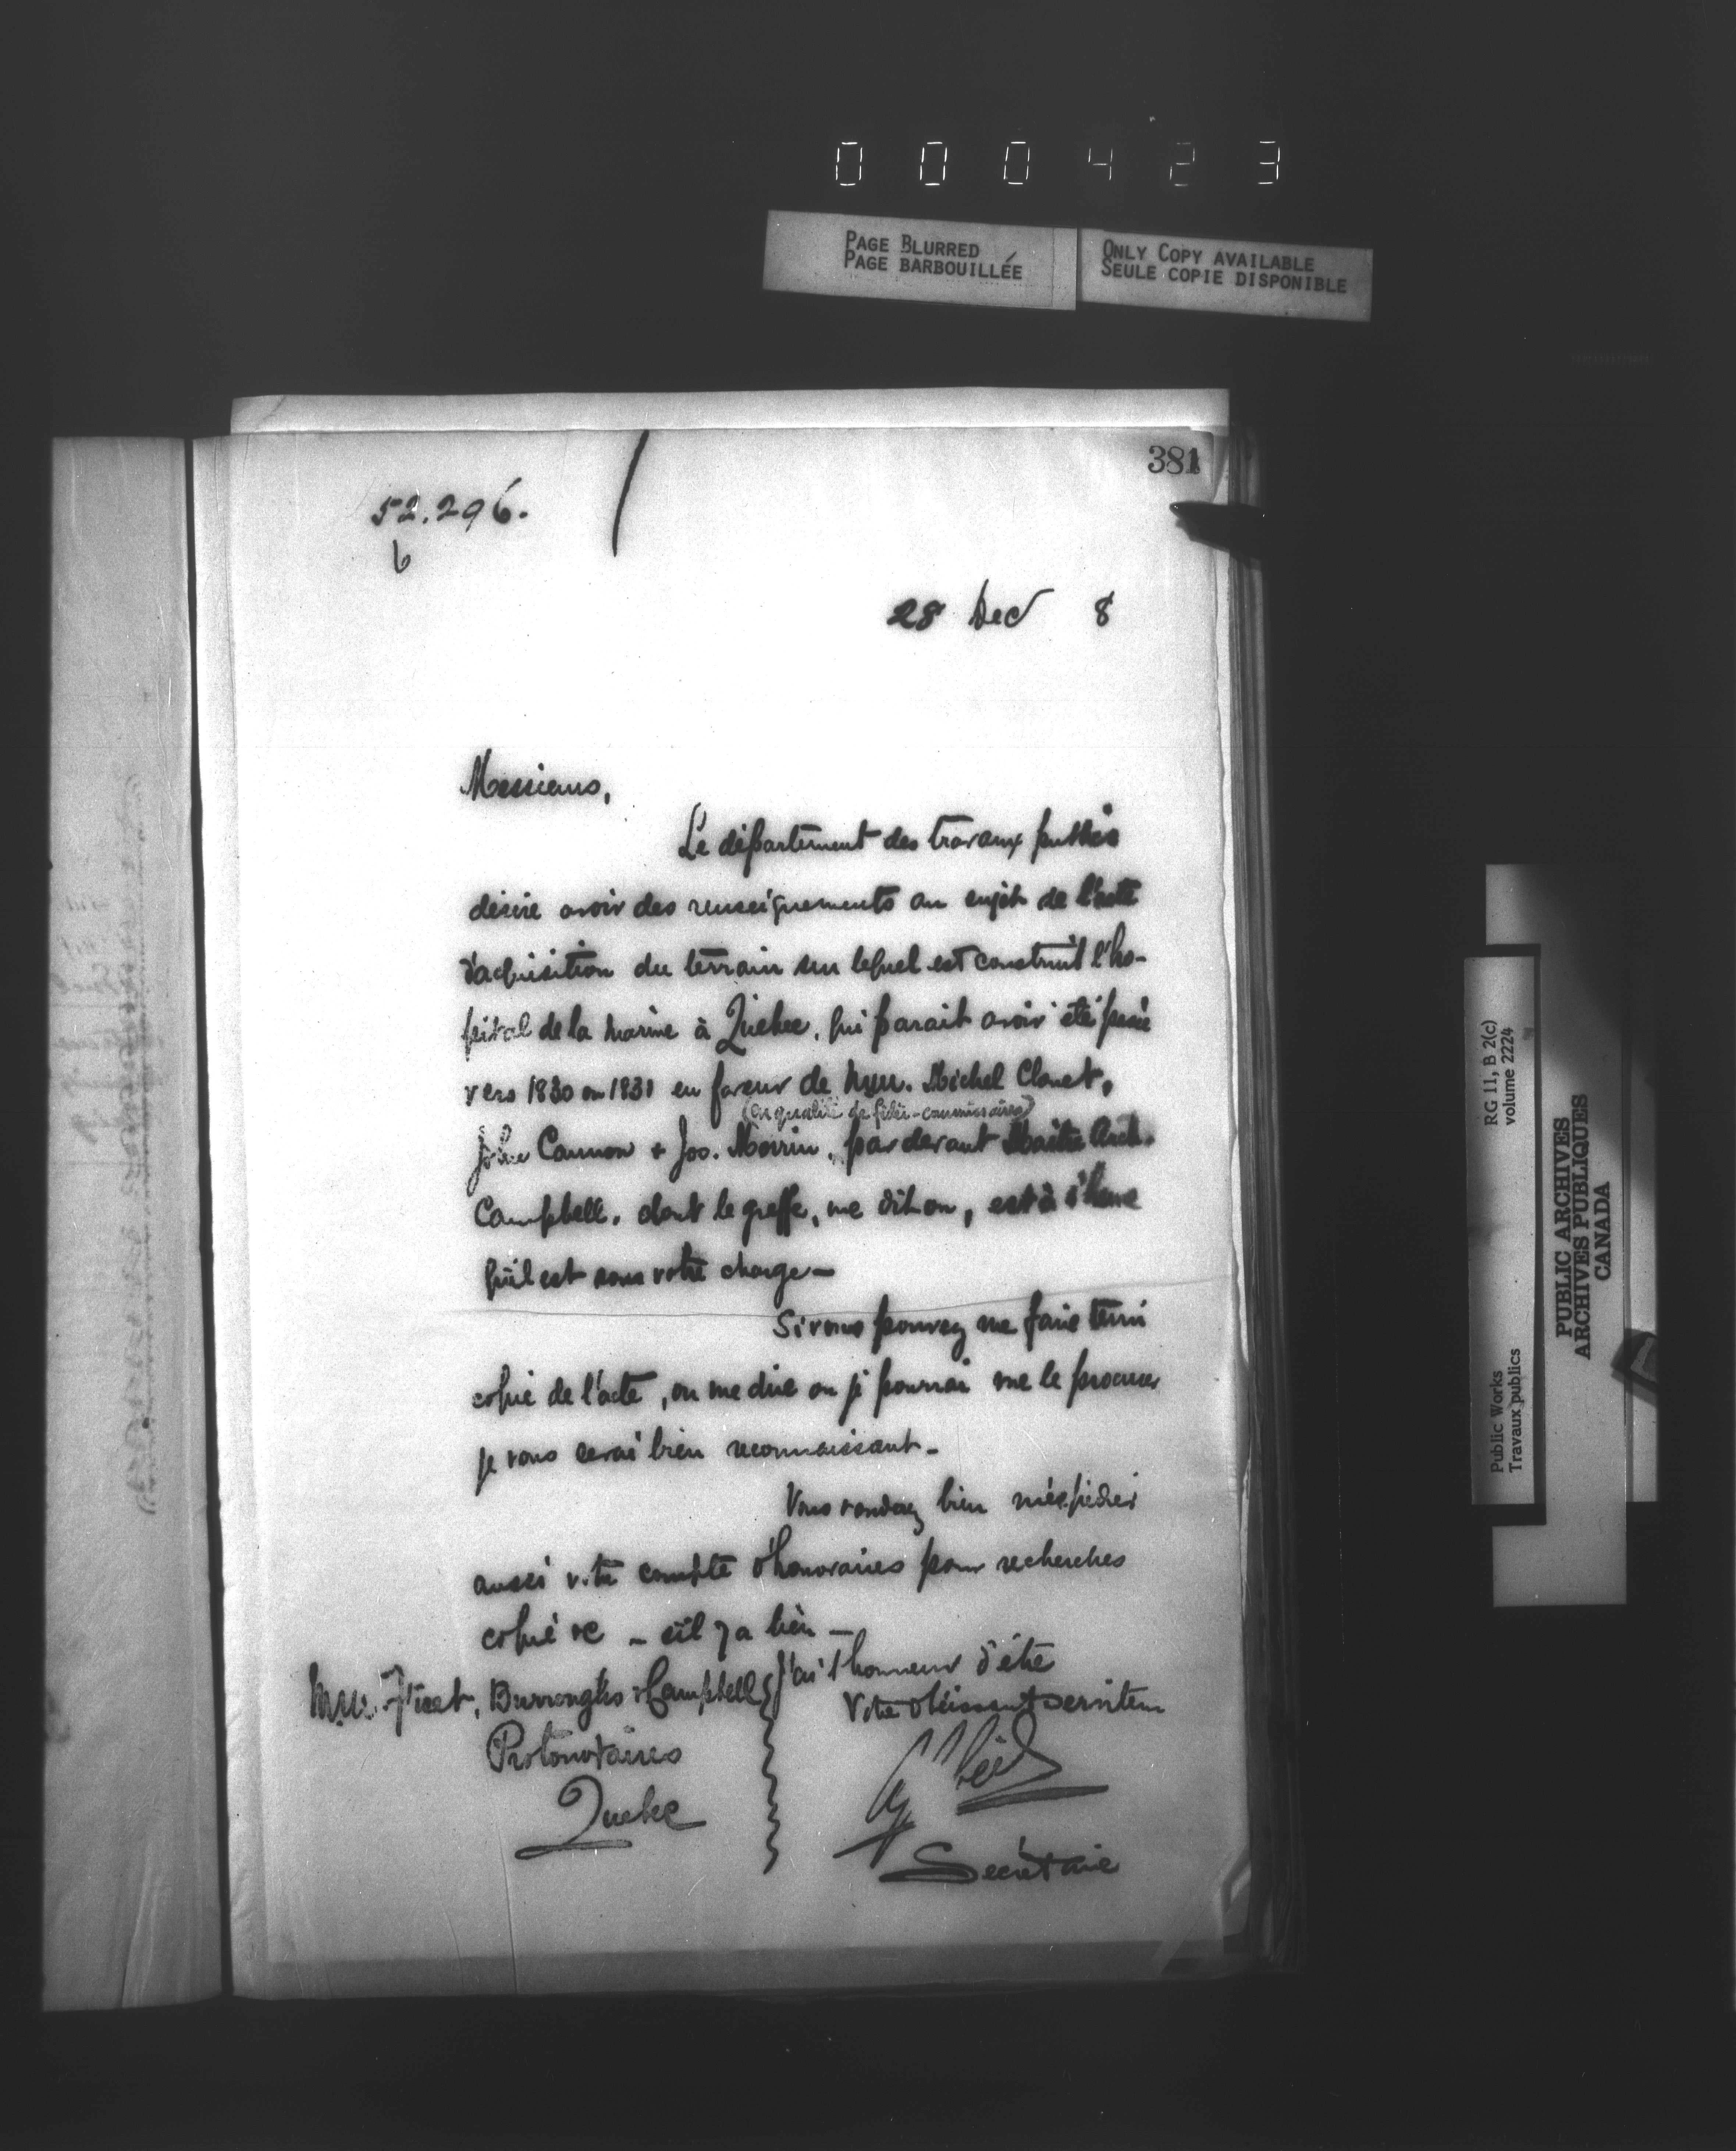 000423
PAGE BLURRED
PAGE BARBOUILLÉE
ONLY COPY AVAILABLE
SEULE COPIE DISPONIBLE
381
52.296.
6
28 Dec 8
Messieurs,
Le département des travaux publics
désire avoir des renseignements au sujet de l'acte
d'acquisition du terrain sur lequel est construit l'ho-
pital de la marine à Quebec, qui parait avoir été passé
vers 1830 ou 1831 en faveur de MM. Michel Clouet,
(en qualité de fidei-commissaires)
John Cannon & Jos. Morrin, par devant Maitre Arch.
Campbell, dont le greffe, me dit on, est à l'heure
qu'il est sous votre charge—
Si vous pouvez me faire tenir
copie de l'acte, ou me dire ou je pourrai me le procurer
je vous serai bien reconnaissant—
Vous voudrez bien m'expédier
aussi votre compte d'honoraires pour recherches
copie &c — s'il y a lieu —
J'ai l'honneur d'être
Votre obéissant serviteur
Secrétaire
MM. Fiset, Burroughs & Campbell
Protonotaires
Quebec
RG 11, B 2(c)
volume 2224
Public Works
Travaux publics
PUBLIC ARCHIVES
ARCHIVES PUBLIQUES
CANADA